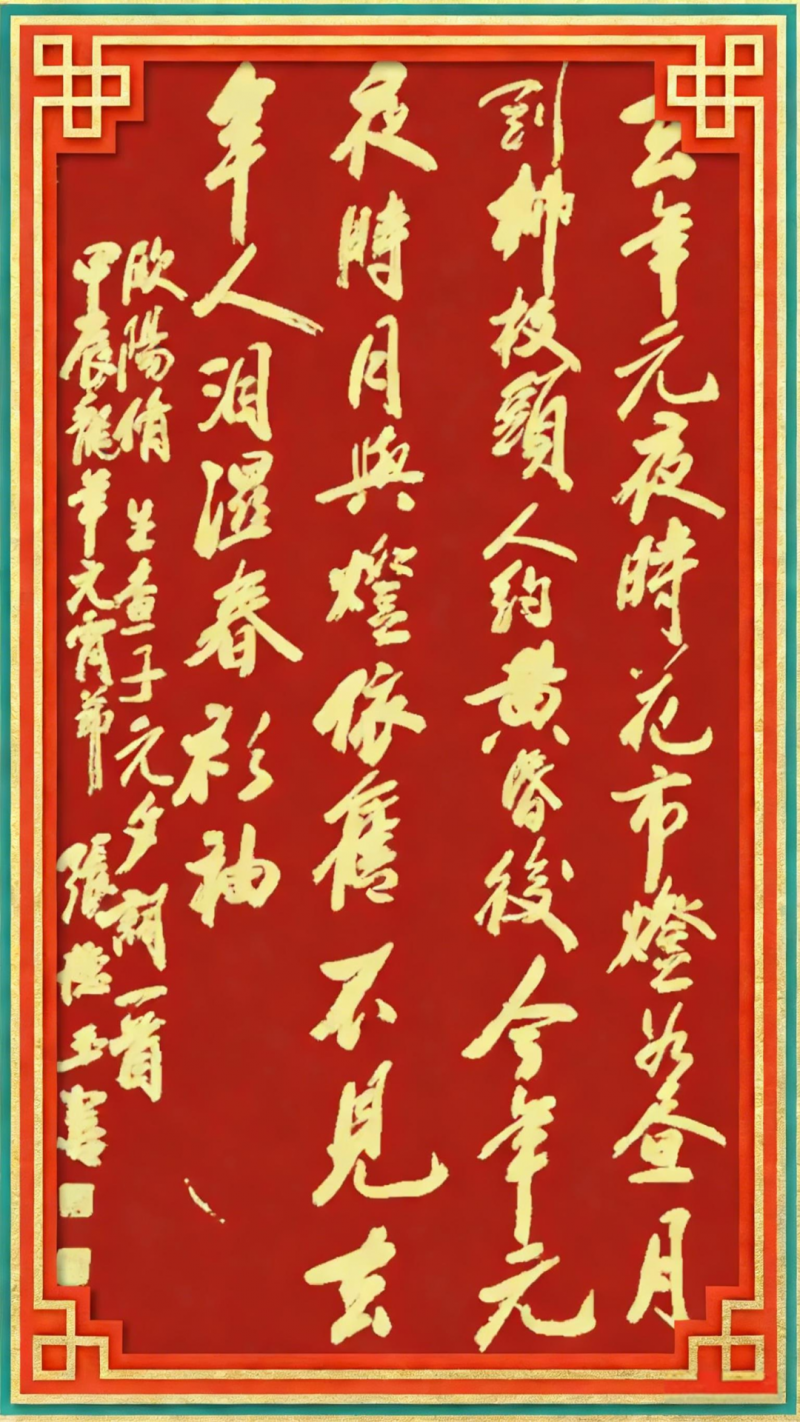 去年元夜時花市燈如晝月
到柳枝頭人約黄昏後今年元
夜時月與燈依舊不見去
年人泪濕春衫袖
歐陽脩 生查子元夕詞一首
甲辰龍年元宵節 張玉書